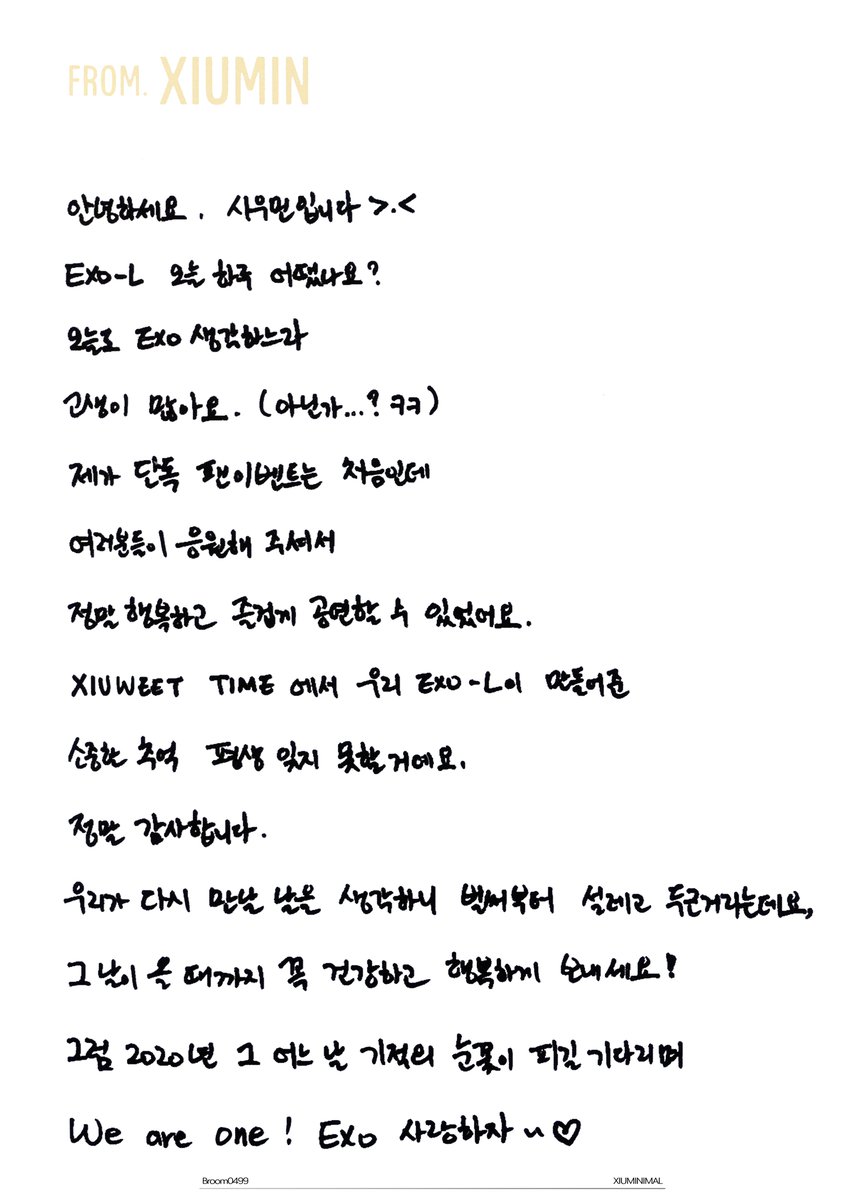 FROM. XIUMIN
안녕하세요. 시우민입니다 >.<
EXO-L 오늘 하루 어땠나요?
오늘도 EXO 생각하느라
고생이 많아요. (아닌가...? ㅋㅋ)
제가 단독 팬이벤트는 처음인데
여러분들이 응원해 주셔서
정말 행복하고 즐겁게 공연할 수 있었어요.
XIUWEET TIME 에서 우리 EXO-L이 만들어준
소중한 추억 평생 잊지 못할거에요.
정말 감사합니다.
우리가 다시 만날 날을 생각하니 벌써부터 설레고 두근거리는데요,
그 날이 올 때까지 꼭 건강하고 행복하게 보내세요!
그럼 2020년 그 어느 날 기적의 눈꽃이 피길 기다리며
We are one! EXO 사랑하자 ~♡
Broom0499 XIUMINIMAL